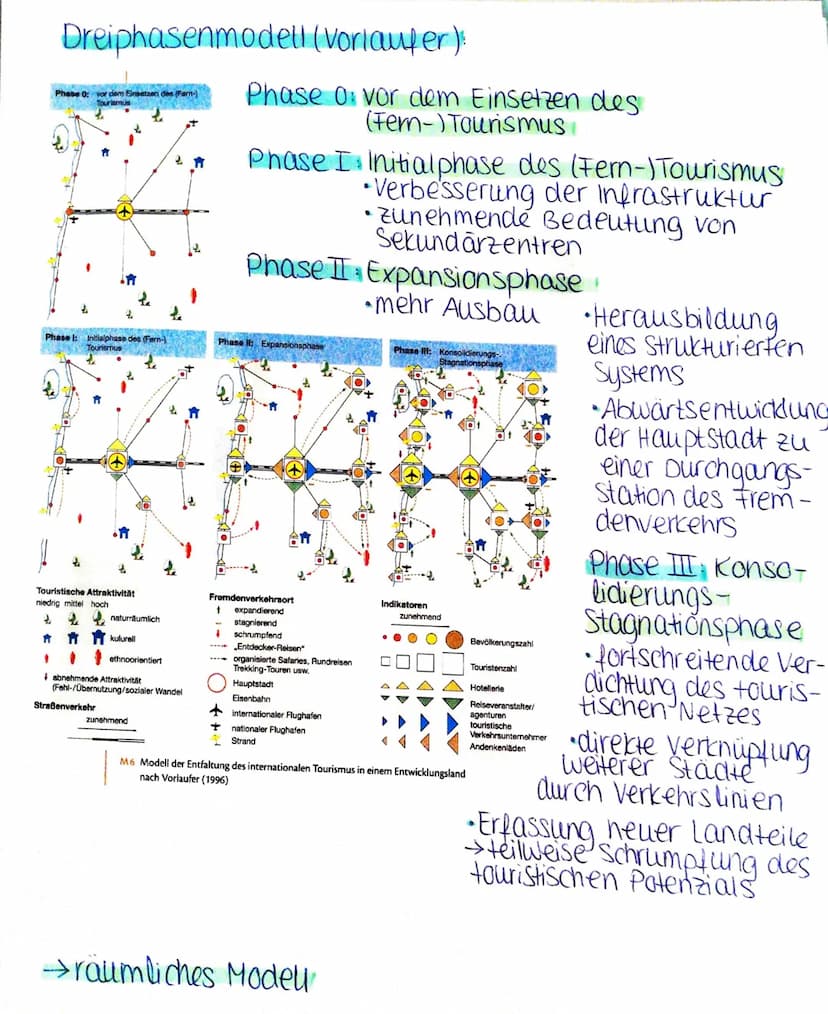 Dreiphasenmodell (Vorlaufer):
Phase 0: vor dem Einsetzen des (Fern-)
Tourismus
Phase 0: vor dem Einsetzen des
(Fern-) Tourismus
Phase I: Initialphase des (Fern-) Tourismus
• Verbesserung der Infrastruktur
• zunehmende Bedeutung von
Sekundärzentren
Phase II: Expansionsphase
• mehr Ausbau
• Herausbildung
eines strukturierten
Systems
• Abwärtsentwicklung
der Hauptstadt zu
einer Durchgangs-
station des Frem-
denverkehrs
Phase I: Initialphase des (Fern-)
Tourismus
Phase II: Expansionsphase
Phase III: Konsolidierungs-
Stagnationsphase
Phase III: Konso-
lidierungs-
Stagnationsphase
• fortschreitende Ver-
dichtung des touris-
tischen Netzes
• direkte Verknüpfung
weiterer Städte
durch Verkehrslinien
• Erfassung neuer Landteile
→ teilweise Schrumpfung des
touristischen Potenzials
Touristische Attraktivität
niedrig mittel hoch
naturräumlich
kulurell
ethnoorientiert
abnehmende Attraktivität
(Fehl-/Übernutzung/sozialer Wandel
Straßenverkehr
zunehmend
Fremdenverkehrsort
expandierend
stagnierend
schrumpfend
„Entdecker-Reisen"
organisierte Safaries, Rundreisen
Trekking-Touren usw.
Hauptstadt
Eisenbahn
internationaler Flughafen
nationaler Flughafen
Strand
Indikatoren
zunehmend
Bevölkerungszahl
Touristenzahl
Hotellerie
Reiseveranstalter/
agenturen
touristische
Verkehrsunternehmer
Andenkenläden
M6 Modell der Entfaltung des internationalen Tourismus in einem Entwicklungsland
nach Vorlaufer (1996)
→ räumliches Modell